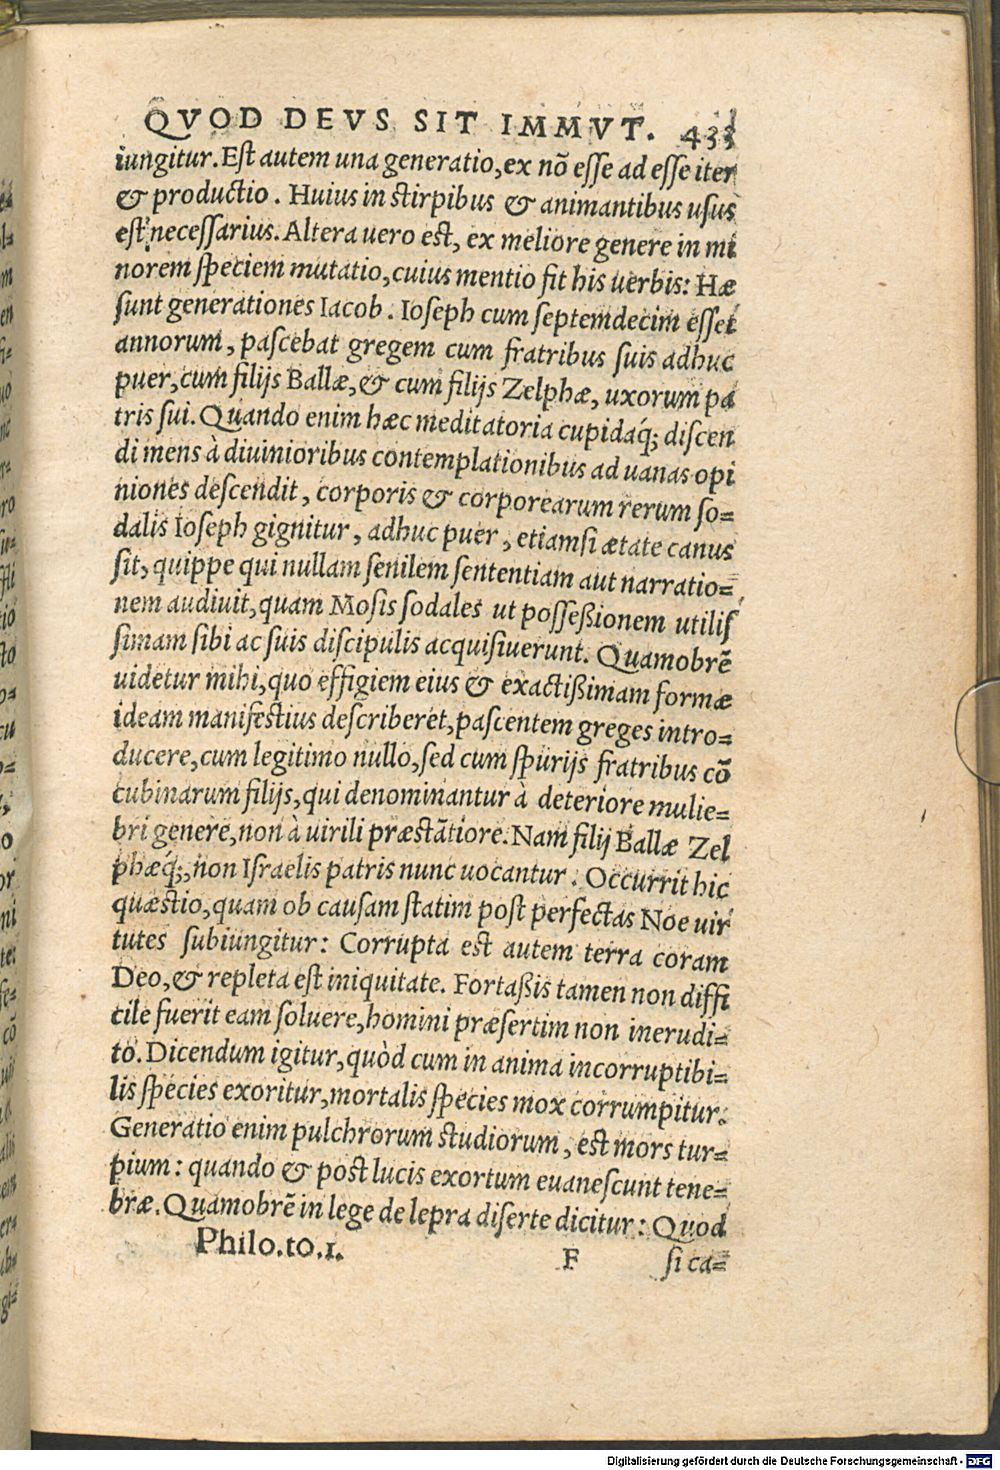 QVOD DEVS SIT IMMVT. 433
iungitur. Est autem una generatio, ex nõ esse ad esse iter
& productio. Huius in stirpibus & animantibus usus
est necessarius. Altera uero est, ex meliore genere in mi
norem speciem mutatio, cuius mentio fit his uerbis: Hæ
sunt generationes Iacob. Ioseph cum septemdecim esset
annorum, pascebat gregem cum fratribus suis adhuc
puer, cum filijs Ballæ, & cum filijs Zelphæ, uxorum pa
tris sui. Quando enim hæc meditatoria cupidaq́; discen
di mens à diuinioribus contemplationibus ad uanas opi
niones descendit, corporis & corporearum rerum so=
dalis Ioseph gignitur, adhuc puer, etiamsi ætate canus
sit, quippe qui nullam senilem sententiam aut narratio=
nem audiuit, quam Mosis sodales ut posseßionem utilis
simam sibi ac suis discipulis acquisiuerunt. Quamobrẽ
uidetur mihi, quo effigiem eius & exactißimam formæ
ideam manifestius describeret, pascentem greges intro=
ducere, cum legitimo nullo, sed cum spurijs fratribus cõ
cubinarum filijs, qui denominantur à deteriore mulie=
bri genere, non à uirili præstãtiore. Nam filij Ballæ Zel
phæq́;, non Israelis patris nunc uocantur. Occurrit hic
quæstio, quam ob causam statim post perfectas Noe uir
tutes subiungitur: Corrupta est autem terra coram
Deo, & repleta est iniquitate. Fortaßis tamen non diffi
cile fuerit eam soluere, homini præsertim non inerudi=
to. Dicendum igitur, quòd cum in anima incorruptibi=
lis species exoritur, mortalis species mox corrumpitur.
Generatio enim pulchrorum studiorum, est mors tur=
pium: quando & post lucis exortum euanescunt tene=
bræ. Quamobrẽ in lege de lepra diserte dicitur: Quod
Philo. to. 1. F si ca=
Digitalisierung gefördert durch die Deutsche Forschungsgemeinschaft - DFG